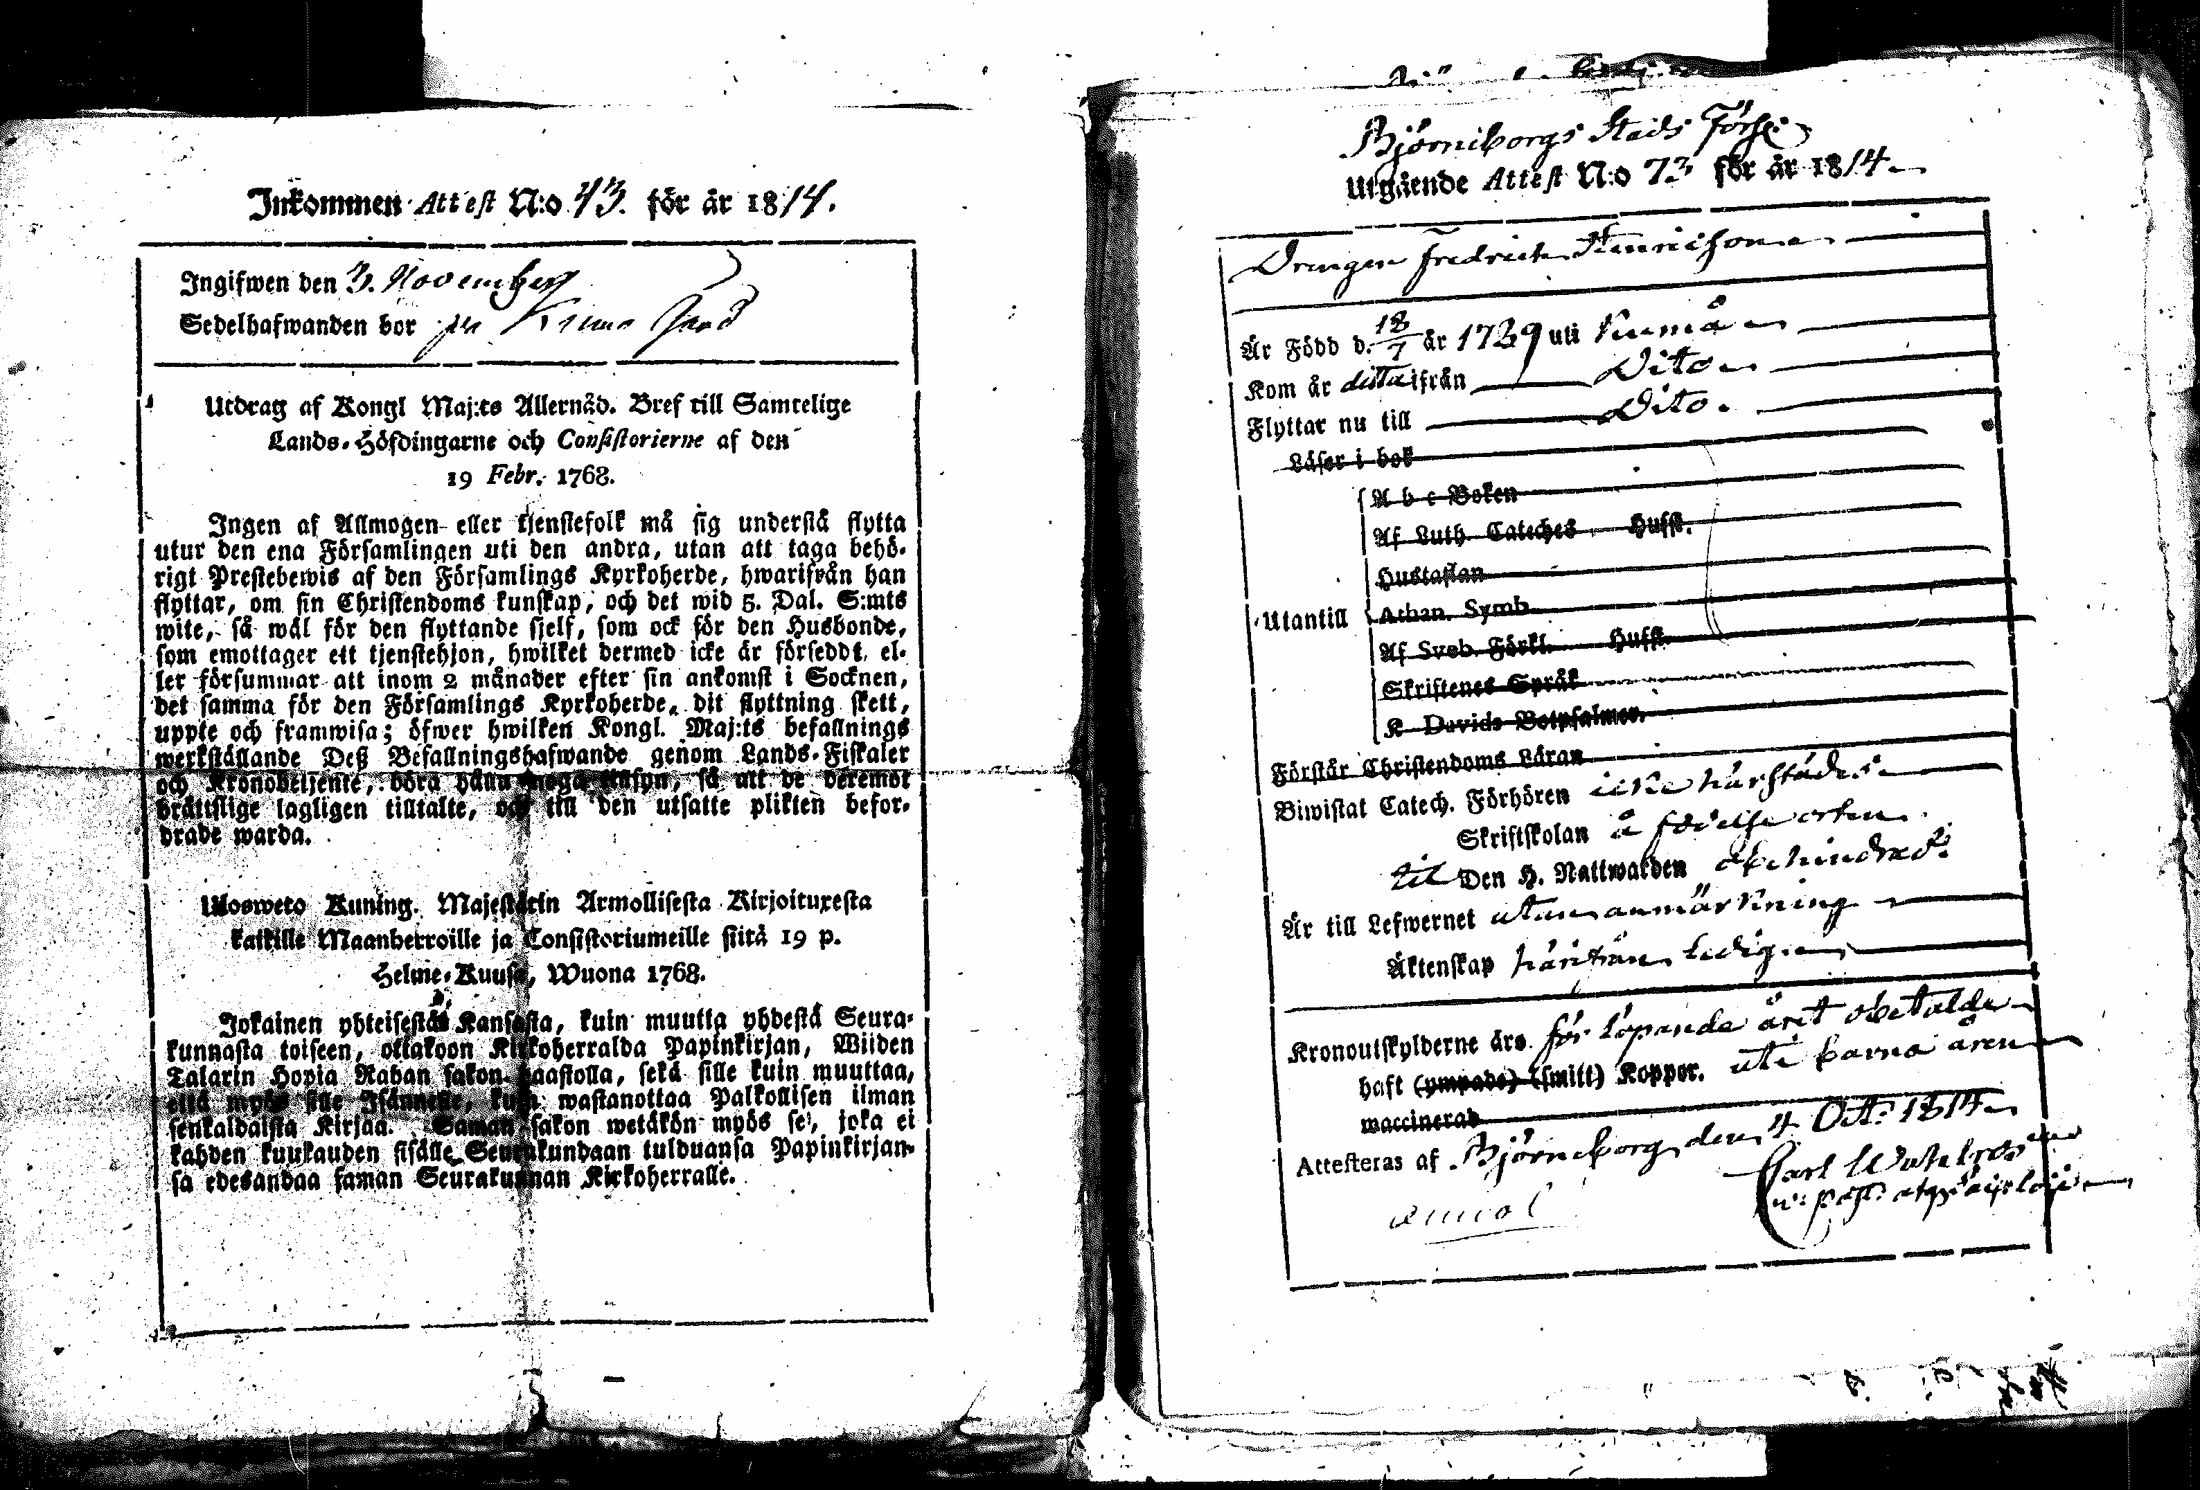 Inkommen Attest N:o 43. för år 1814.
Ingifwen den 3. November
Sedelhafwanden bor
Utdrag af Kongl Maj:ts Allernåd. Bref till Samtelige
Lands-Höfdingarne och Consistorierne af den
19 Febr. 1768.
Ingen af Allmogen eller tjenstefolk må sig understå flytta
utur den ena Församlingen uti den andra, utan att taga behö-
rigt Prestebewis af den Församlings Kyrkoherde, hwarifrån han
flyttar, om sin Christendoms kunskap, och det wid 5. Dal. S:mts
wite, så wäl för den flyttande sjelf, som ock för den Husbonde,
som emottager ett tjenstehjon, hwilket dermed icke är försedt, el-
ler försummar att inom 2 månader efter sin ankomst i Socknen,
det samma för den Församlings Kyrkoherde, dit flyttning skett,
uppte och framwisa; öfwer hwilken Kongl. Maj:ts befallnings
werkställande Deß Befallningshafwande genom Lands-Fiskaler
och Kronobetjente, böra hålla noga tillsyn, så att de deremot
brättslige lagligen tilltalte, och till den utsatte plikten befor-
drade warda.
Ulosweto Kuning. Majestetin Armollisesta Kirjoituxesta
kaikille Maanherroille ja Consistoriumeille siitä 19 p.
Helme-Kuusa, Wuona 1768.
Jokainen yhteisestä Kansasta, kuin muutta yhdestä Seura-
kunnasta toiseen, ottakoon Kirkoherralda Papinkirjan, Wiiden
Talarin Hopia Rahan sakon haastolla, sekä sille kuin muuttaa,
että myös sille Isännelle, kuin wastanottaa Palkollisen ilman
senkaldaista Kirjaa. Saman sakon wetäkön myös se, joka ei
kahden kuukauden sisälle Seurakundaan tulduansa Papinkirjan-
sa edesandaa saman Seurakunnan Kirkoherralle.
Björneborgs Stads Förs:
Utgående Attest N:o 73 för år 1814.
Drengen Fredrich Henricsson
Är Född d. 18/7 år 1789 uti Kumå
Kom år detta ifrån Dito
Flyttar nu till Dito.
Läser i bok
Utantill
A b c Boken
Af Luth. Cateches Hufst.
Hustaflan
Athan. Symb.
Af Sveb. Förkl. Hufst.
Skriftenes Språk
K. Davids Botpsalmer.
Förstår Christendoms Läran
Biwistat Catech. Förhören icke härstädes
Skriftskolan å födelse orten
til Den H. Nattwarden obehindrad
Är till Lefwernet utan anmärkning
Äktenskap härifrån ledig
Kronoutskylderne äro för löpande året obetalde
haft (ympade) (smitt) Koppor. uti barna åren
waccinerad
Attesteras af Björneborg den 4 Oct. 1814
Carl